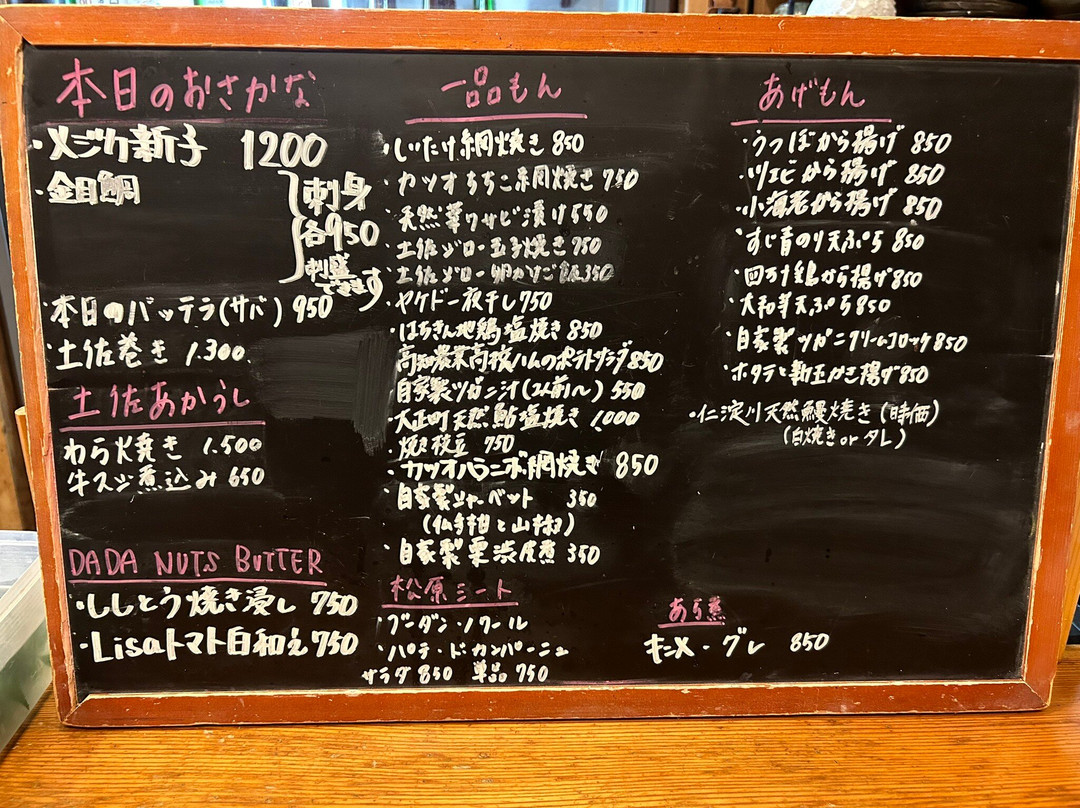 本日のおさかな
・メジカ新子 1200
・金目鯛
刺身
各950
刺盛
できます
・本日のバッテラ(サバ) 950
・土佐巻き 1.300
土佐あかうし
わら火焼き 1.500
牛スジ煮込み 650
DADA NUTS BUTTER
・ししとう焼き浸し 750
・Lisaトマト白和え 750
一品もん
・しいたけ網焼き 850
・カツオちちこ網焼き 750
・天然葉ワサビ漬け 550
・土佐ジロー玉子焼き 750
・土佐ジロー卵かけご飯 350
・ヤケド一夜干し 750
・はちきん地鶏塩焼き 850
・高知農業高校ハムのポテトサラダ 850
・自家製ツガニ汁(2人前〜) 550
・大正町天然鮎塩焼き 1,000
・焼き枝豆 750
・カツオハラニボ網焼き 850
・自家製シャーベット 350
(仏手柑と山椒)
・自家製栗渋皮煮 350
松原ミート
・ブーダン・ノワール
・パテ・ド・カンパーニュ
サラダ 850 単品 750
あげもん
・うつぼから揚げ 850
・ツエビから揚げ 850
・小海老から揚げ 850
・すじ青のり天ぷら 850
・四万十鶏から揚げ 850
・大和芋天ぷら 850
・自家製ツガニクリームコロッケ 850
・ホタテと新玉かき揚げ 850
・仁淀川天然鰻焼き(時価)
(白焼き or タレ)
あら煮
キンメ・グレ 850